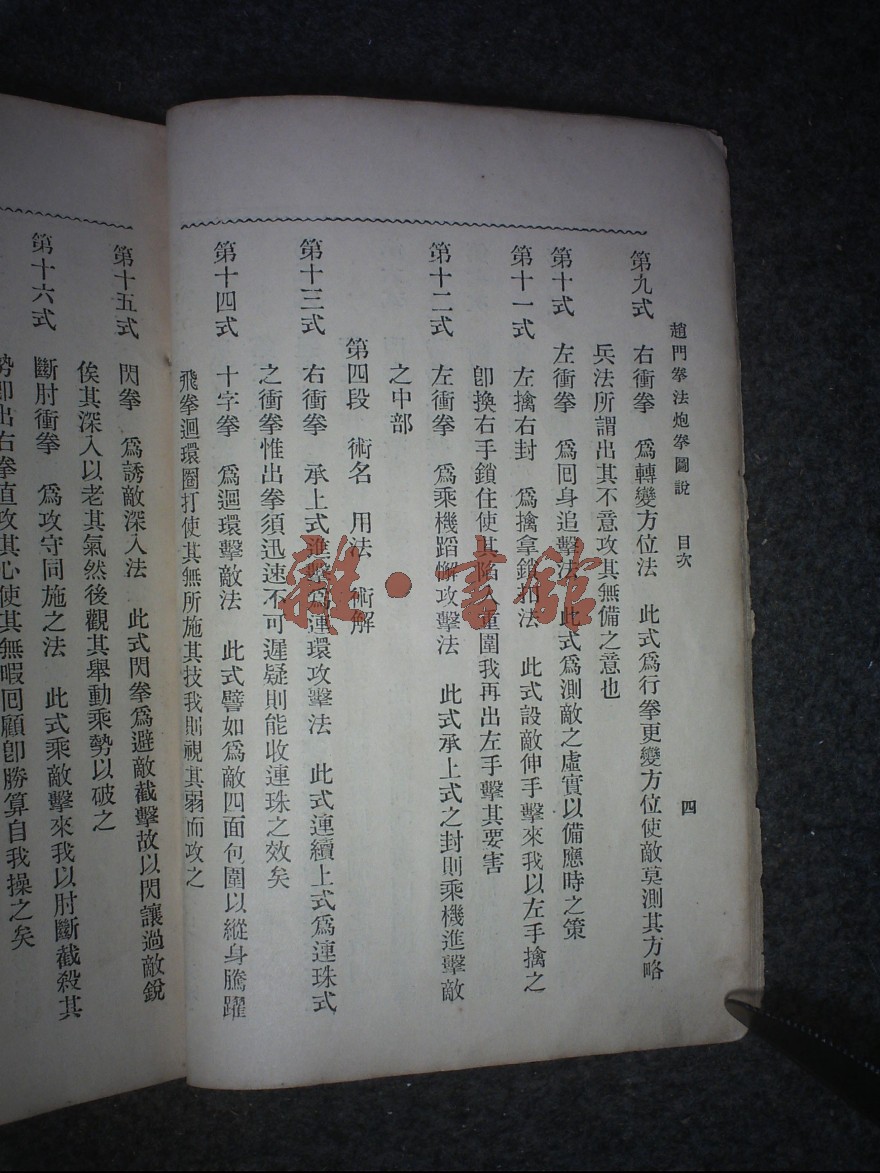 趙門拳法炮拳圖說　目次　四
第九式　右衝拳　爲轉變方位法　此式爲行拳更變方位使敵莫測其方略
兵法所謂出其不意攻其無備之意也
第十式　左衝拳　爲回身追擊法　此式爲測敵之虛實以備應時之策
第十一式　左擒右封　爲擒拿鎖打法　此式設敵伸手擊來我以左手擒之
卽換右手鎖住使其陷入重圍我再出左手擊其要害
第十二式　左衝拳　爲乘機蹈懈攻擊法　此式承上式之封則乘機進擊敵
之中部
第四段　術名　用法　術解
第十三式　右衝拳　承上式進擊爲連環攻擊法　此式連續上式爲連珠式
之衝拳惟出拳須迅速不可遲疑則能收連珠之效矣
第十四式　十字拳　爲迴環擊敵法　此式譬如爲敵四面包圍以縱身騰躍
飛拳迴環圈打使其無所施其技我則視其弱而攻之
第十五式　閃拳　爲誘敵深入法　此式閃拳爲避敵截擊故以閃讓過敵銳
俟其深入以老其氣然後觀其舉動乘勢以破之
第十六式　斷肘衝拳　爲攻守同施之法　此式乘敵擊來我以肘斷截殺其
勢卽出右拳直攻其心使其無暇回顧卽勝算自我操之矣
雜·書館